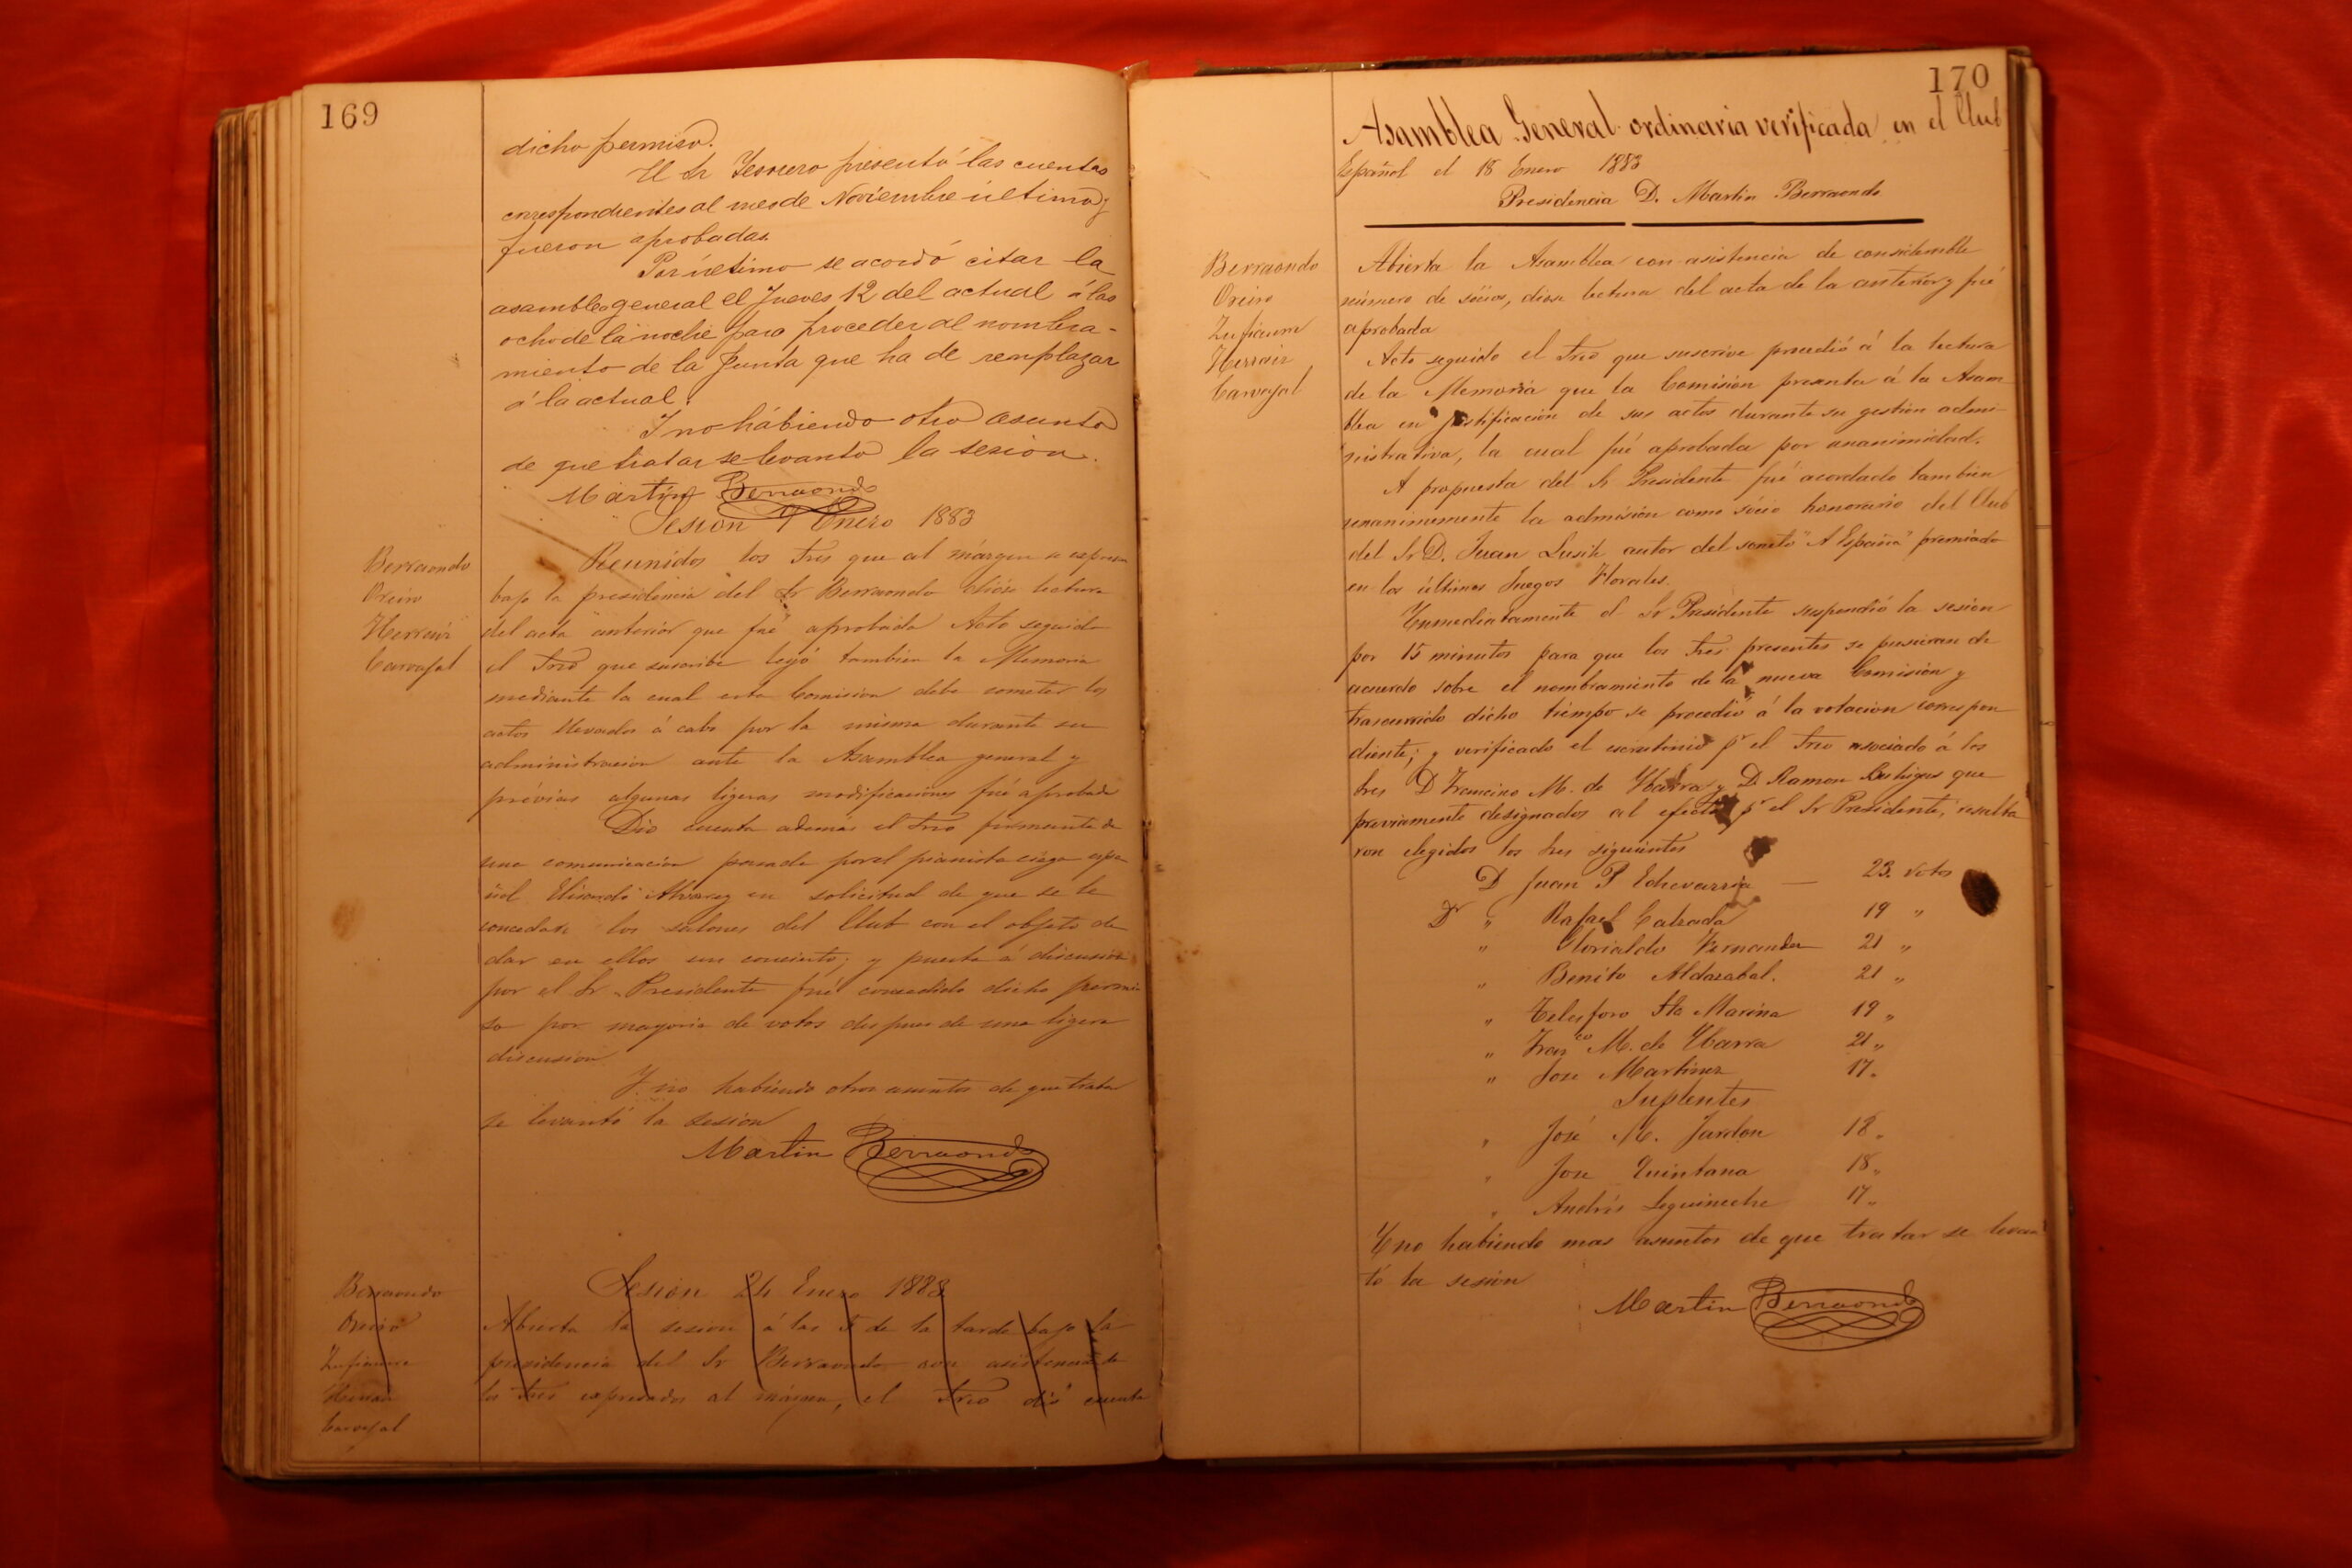 169
dicho permiso.
El Sr Tesorero presentó las cuentas
correspondientes al mes de Noviembre último y
fueron aprobadas.
Por último se acordó citar la
asamblea general el Jueves 12 del actual á las
ocho de la noche para proceder al nombra-
miento de la Junta que ha de remplazar
á la actual.
Y no habiendo otro asunto
de que tratar se levanto la sesion.
Martin Berraondo
Sesion 9 Enero 1883
Berraondo
Oreiro
Herraiz
Carvajal
Reunidos los Sres que al márgen se expresan
bajo la presidencia del Sr Berraondo dióse lectura
del acta anterior que fué aprobada Acto seguido
el Srio que suscribe leyó tambien la Memoria
mediante la cual esta Comision debe someter los
actos llevados á cabo por la misma durante su
administracion ante la Asamblea general y
prévias algunas ligeras modificaciones fué aprobada
Dió cuenta además el Srio firmante de
una comunicacion pasada por el pianista ciego espa
ñol Elisardo Alvarez en solicitud de que se le
concedan los salones del Club con el objeto de
dar en ellos un concierto; y puesta á discusion
por el Sr Presidente fué concedido dicho permi
so por mayoria de votos despues de una ligera
discusion
Y no habiendo otros asuntos de que tratar
se levantó la sesion
Martin Berraondo
Berraondo
Oreiro
Carvajal
Sesion 24 Enero 1883
Abierta la sesion á las 5 de la tarde bajo la
presidencia del Sr Berraondo con asistencia de
los Sres expresados al márgen, el Srio dió cuenta
170
Asamblea General ordinaria verificada en el Club
Español el 18 Enero 1883
Presidencia D. Martin Berraondo
Berraondo
Oreiro
Herraiz
Carvajal
Abierta la Asamblea con asistencia de considerable
número de sócios, dióse lectura del acta de la anterior y fué
aprobada
Acto seguido el Srio que suscrive procedió á la lectura
de la Memoria que la Comisión presenta á la Asam
blea en justificacion de sus actos durante su gestión admi-
nistrativa, la cual fué aprobada por unanimidad.
A propuesta del Sr Presidente fué acordado tambien
unanimemente la admisión como sócio honorario del Club
del Sr D. Juan autor del soneto "A España" premiado
en los últimos Juegos Florales.
Inmediatamente el Sr Presidente suspendió la sesion
por 15 minutos para que los Sres presentes se pusieran de
acuerdo sobre el nombramiento de la nueva Comisión y
trascurrido dicho tiempo se procedió á la votacion correspon
diente; y verificado el escrutinio pr el Srio asociado á los
Sres D Francisco M. de Ybarra y D. Ramon que
previamente designados al efecto pr el Sr Presidente, resulta
ron elegidos los Sres siguientes
D Juan P Echevarria — 23. votos
Dr " Rafael Calzada 19 "
" Florialdo Fernandez 21 "
" Benito Aldazabal. 21 "
" Telesforo Sta Marina 19 "
" Franco M. de Ybarra 21 "
" Jose Martinez 17 "
Suplentes
" José M. Jardon 18 "
" Jose Quintana 18 "
" Andrés Leguineche 17 "
Y no habiendo mas asuntos de que tratar se levan
tó la sesion
Martin Berraondo